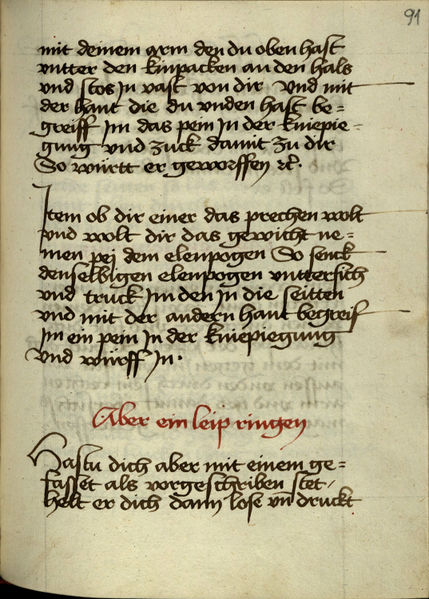 91
mit deinem arm den du oben hast
vntter den kinpacken an den hals
vnd stos In vast von dir vnd mit
der hant die du vnden hast be=
greiff Im das pein In der kniepie
gung vnd zuck damit zu dir
So württ er geworffen rc.
Item ob dir einer das prechen wolt
vnd wolt dir das gewicht ne=
men pej dem elenpogen So senck
denselbigen elenpogen vnttersich
vnd truck Im den In die seitten
vnd mit der andern hant begreif
Im ein pein In der kniepiegung
vnd würff In.
Aber ein leip ringen
Hastu dich aber mit einem ge=
fasset als vorgeschriben stet
helt er dich dann lose vn̄ druckt